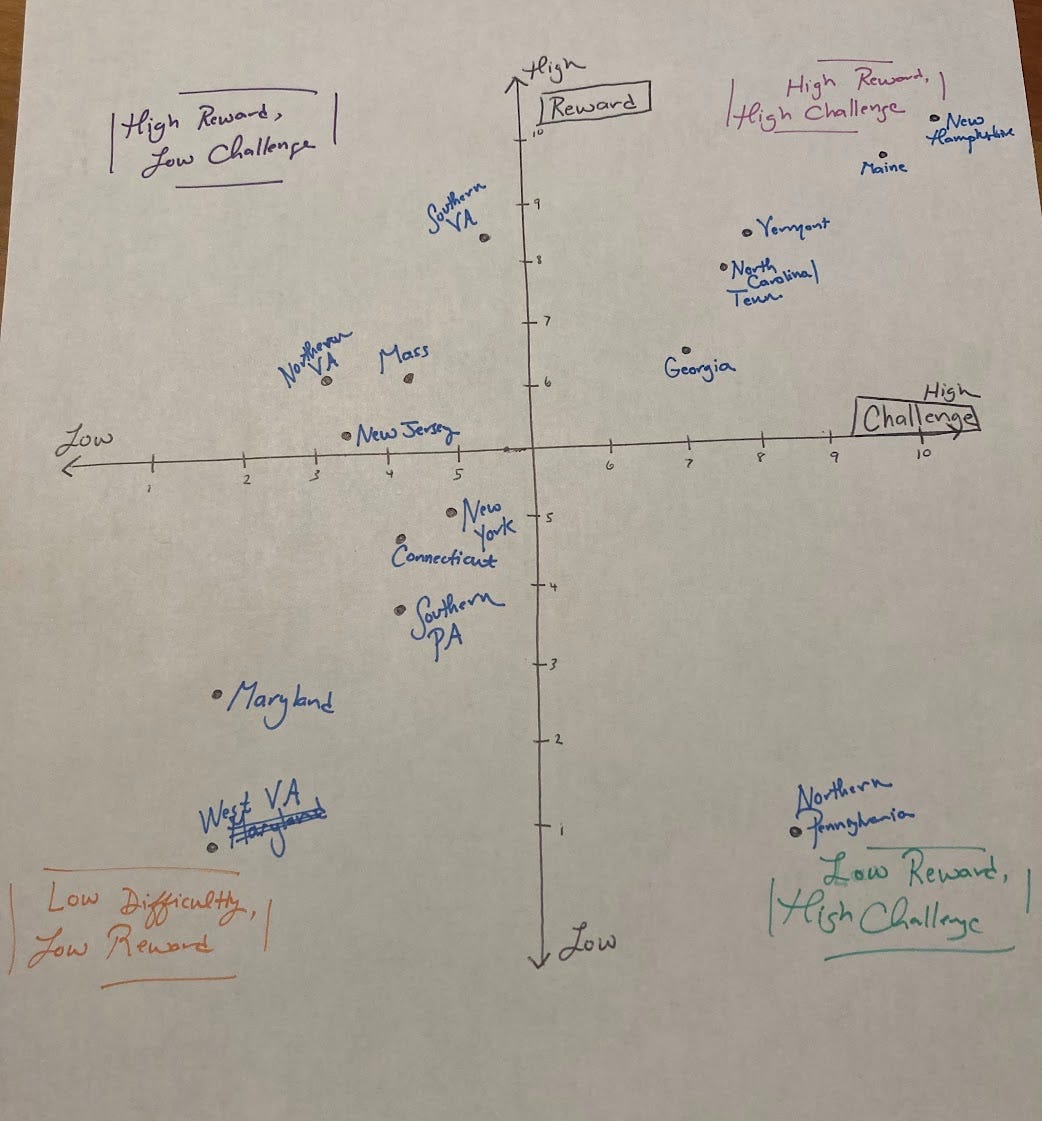 High
Reward
10
High Reward,
Low Challenge
High Reward,
High Challenge
New
Hampshire
Maine
Southern
VA
9
Vermont
8
North
Carolina/
Tenn.
7
Northern
VA
Mass
6
Georgia
High
Challenge
Low
New Jersey
1
2
3
4
5
6
7
8
9
10
New
York
5
Connecticut
4
Southern
PA
3
Maryland
2
West VA
Maryland
1
Northern
Pennsylvania
Low Difficultly,
Low Reward
Low Reward,
High Challenge
Low